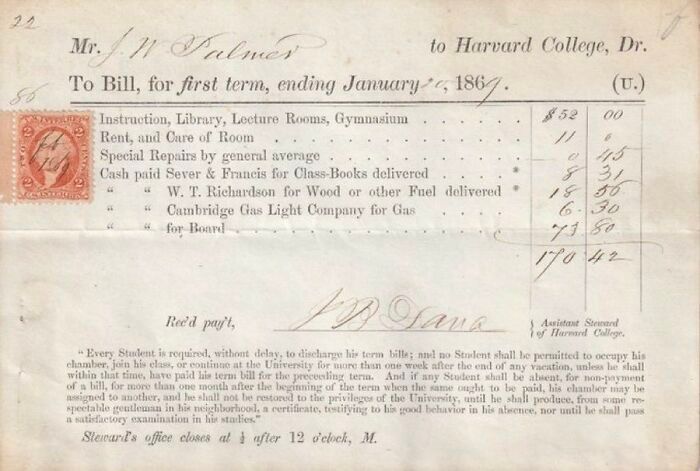 22
Mr. J W Palmer to Harvard College, Dr.
To Bill, for first term, ending January 20, 1869. (U.)
86
Instruction, Library, Lecture Rooms, Gymnasium . . . . . . $52 00
Rent, and Care of Room . . . . . . . . . . . . 11 0
Special Repairs by general average . . . . . . . . . 0 45
Cash paid Sever & Francis for Class-Books delivered . . . . * 8 31
" " W. T. Richardson for Wood or other Fuel delivered * 18 56
" " Cambridge Gas Light Company for Gas . . . . 6 30
" " for Board . . . . . . . . . . . . . . 73 80
170 42
2 2
U.S. INTER. REV.
Rec'd pay't, J B Dana } Assistant Steward
of Harvard College.
"Every Student is required, without delay, to discharge his term bills; and no Student shall be permitted to occupy his
chamber, join his class, or continue at the University for more than one week after the end of any vacation, unless he shall
within that time, have paid his term bill for the preceeding term. And if any Student shall be absent, for non-payment
of a bill, for more than one month after the beginning of the term when the same ought to be paid, his chamber may be
assigned to another, and he shall not be restored to the privileges of the University, until he shall produce, from some re-
spectable gentleman in his neighborhood, a certificate, testifying to his good behavior in his absence, nor until he shall pass
a satisfactory examination in his studies."
Steward's office closes at ½ after 12 o'clock, M.